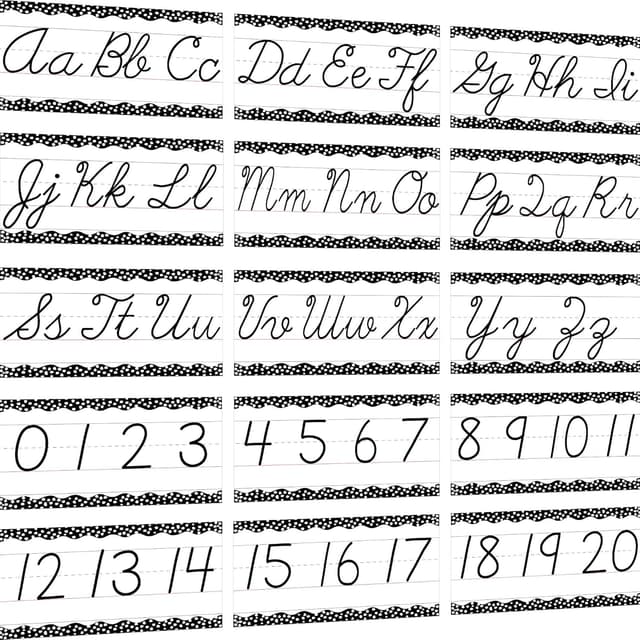 Aa Bb Cc Dd Ee Ff Gg Hh Ii
Jj Kk Ll Mm Nn Oo Pp Qq Rr
Ss Tt Uu Vv Ww Xx Yy Zz
0 1 2 3 4 5 6 7 8 9 10 11
12 13 14 15 16 17 18 19 20